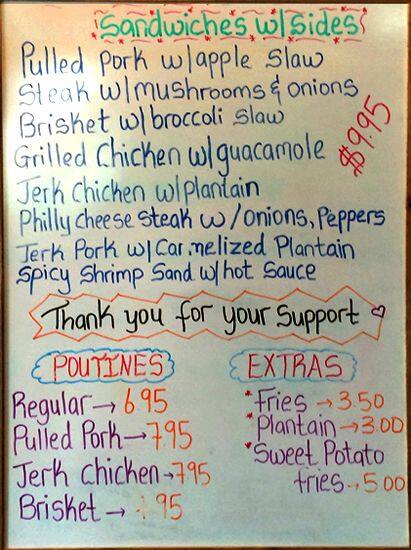 Sandwiches w/sides
Pulled pork w/apple slaw
Steak w/mushrooms & onions
Brisket w/broccoli slaw
Grilled Chicken w/guacamole
$9.95
Jerk Chicken w/plantain
Philly cheese steak w/onions, Peppers
Jerk Pork w/Car.melized Plantain
Spicy Shrimp Sand w/hot Sauce
Thank you for your Support
POUTINES
Regular → 6.95
Pulled Pork → 7.95
Jerk Chicken → 7.95
Brisket → 95
EXTRAS
*Fries → 3.50
*Plantain → 3.00
*Sweet Potato
fries → 5.00